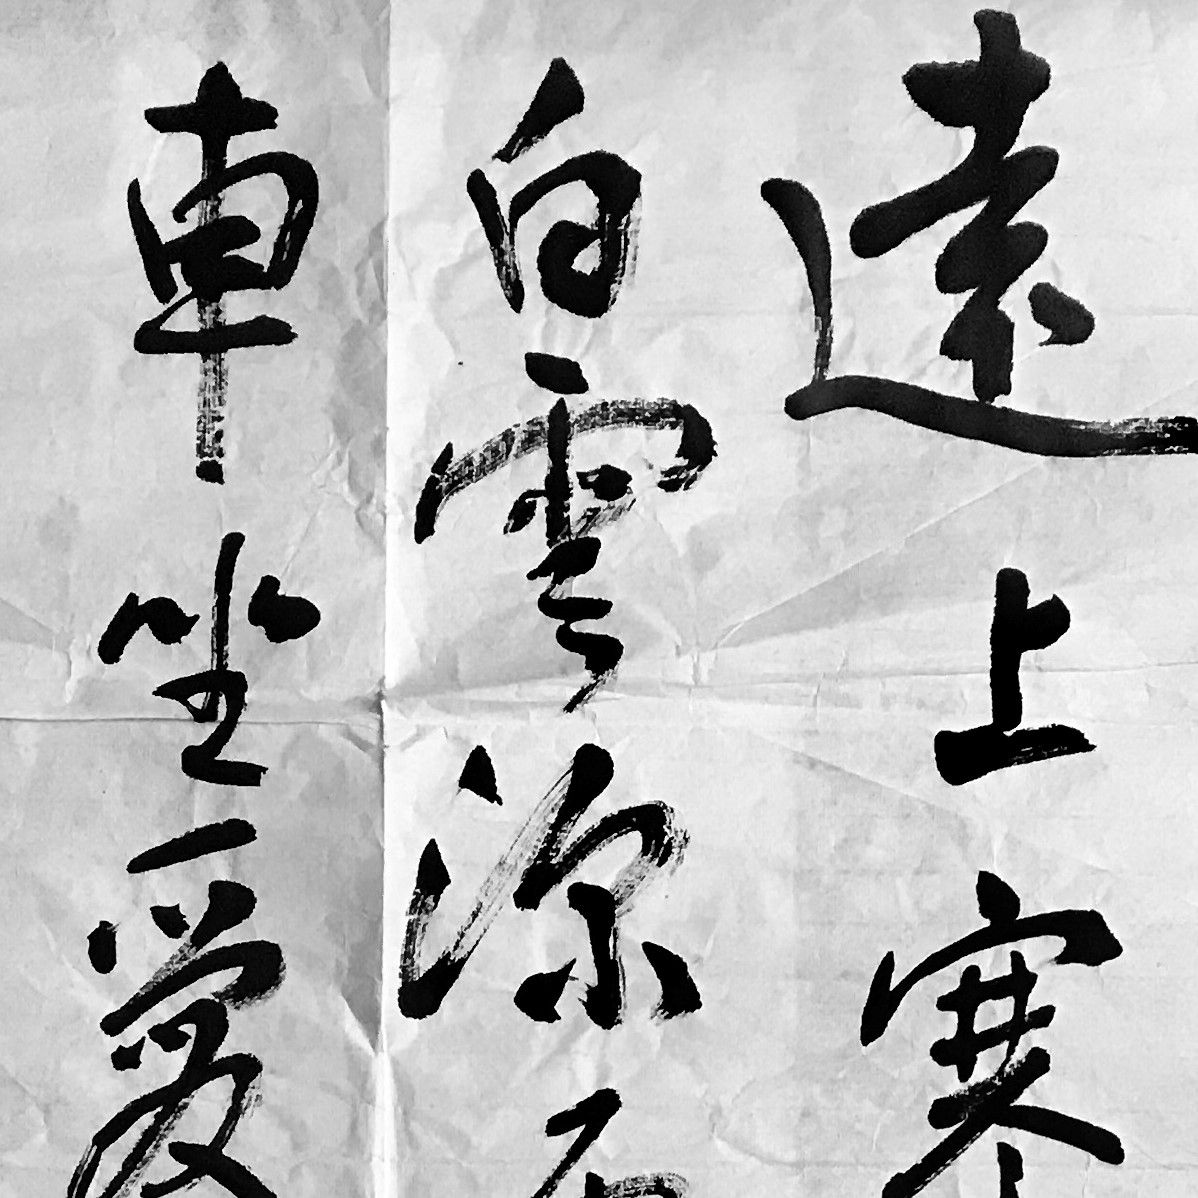 遠上寒
白雲深
車坐愛